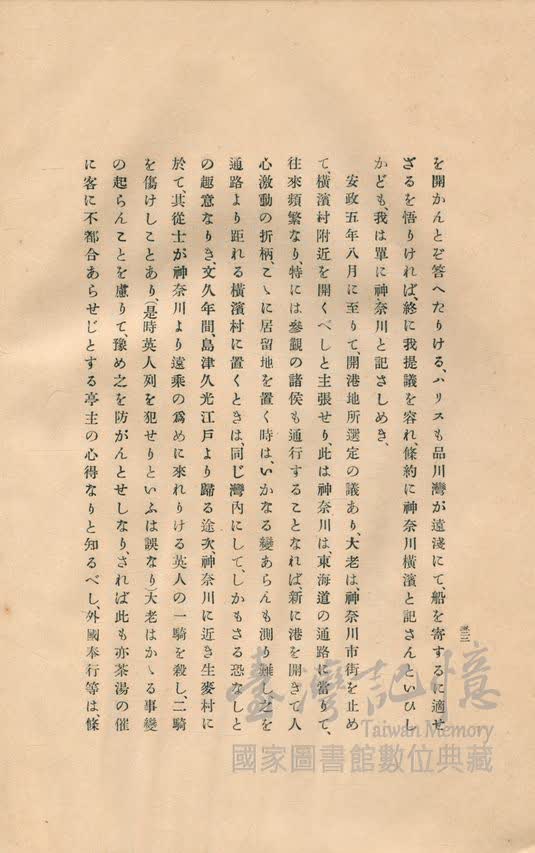 を開かんとぞ答へたりける、ハリスも品川灣が遠淺にて、船を寄するに適せ
ざるを悟りければ、終に我提議を容れ、條約に神奈川橫濱と記さんといひし
かども、我は單に神奈川と記さしめき、
安政五年八月に至りて、開港地所選定の議あり、大老は、神奈川市街を止め
て、橫濱村附近を開くべしと主張せり、此は神奈川は、東海道の通路に當りて、
往來頻繁なり、特には參觀の諸侯も通行することなれば、新に港を開きて人
心激動の折柄、こゝに居留地を置く時は、いかなる變あらんも測り難し、之を
通路より距れる橫濱村に置くときは、同じ灣內にして、しかもさる恐なしと
の趣意なりき、文久年間、島津久光江戶より歸る途次、神奈川に近き生麥村に
於て、其從士が神奈川より遠乘の爲めに來れりける英人の一騎を殺し、二騎
を傷けしことあり、(是時英人列を犯せりといふは誤なり)大老はかゝる事變
の起らんことを慮りて豫め之を防がんとせしなり、されば此も亦茶湯の催
に客に不都合あらせじとする亭主の心得なりと知るべし、外國奉行等は、條
臺灣記憶
Taiwan Memory
國家圖書館數位典藏